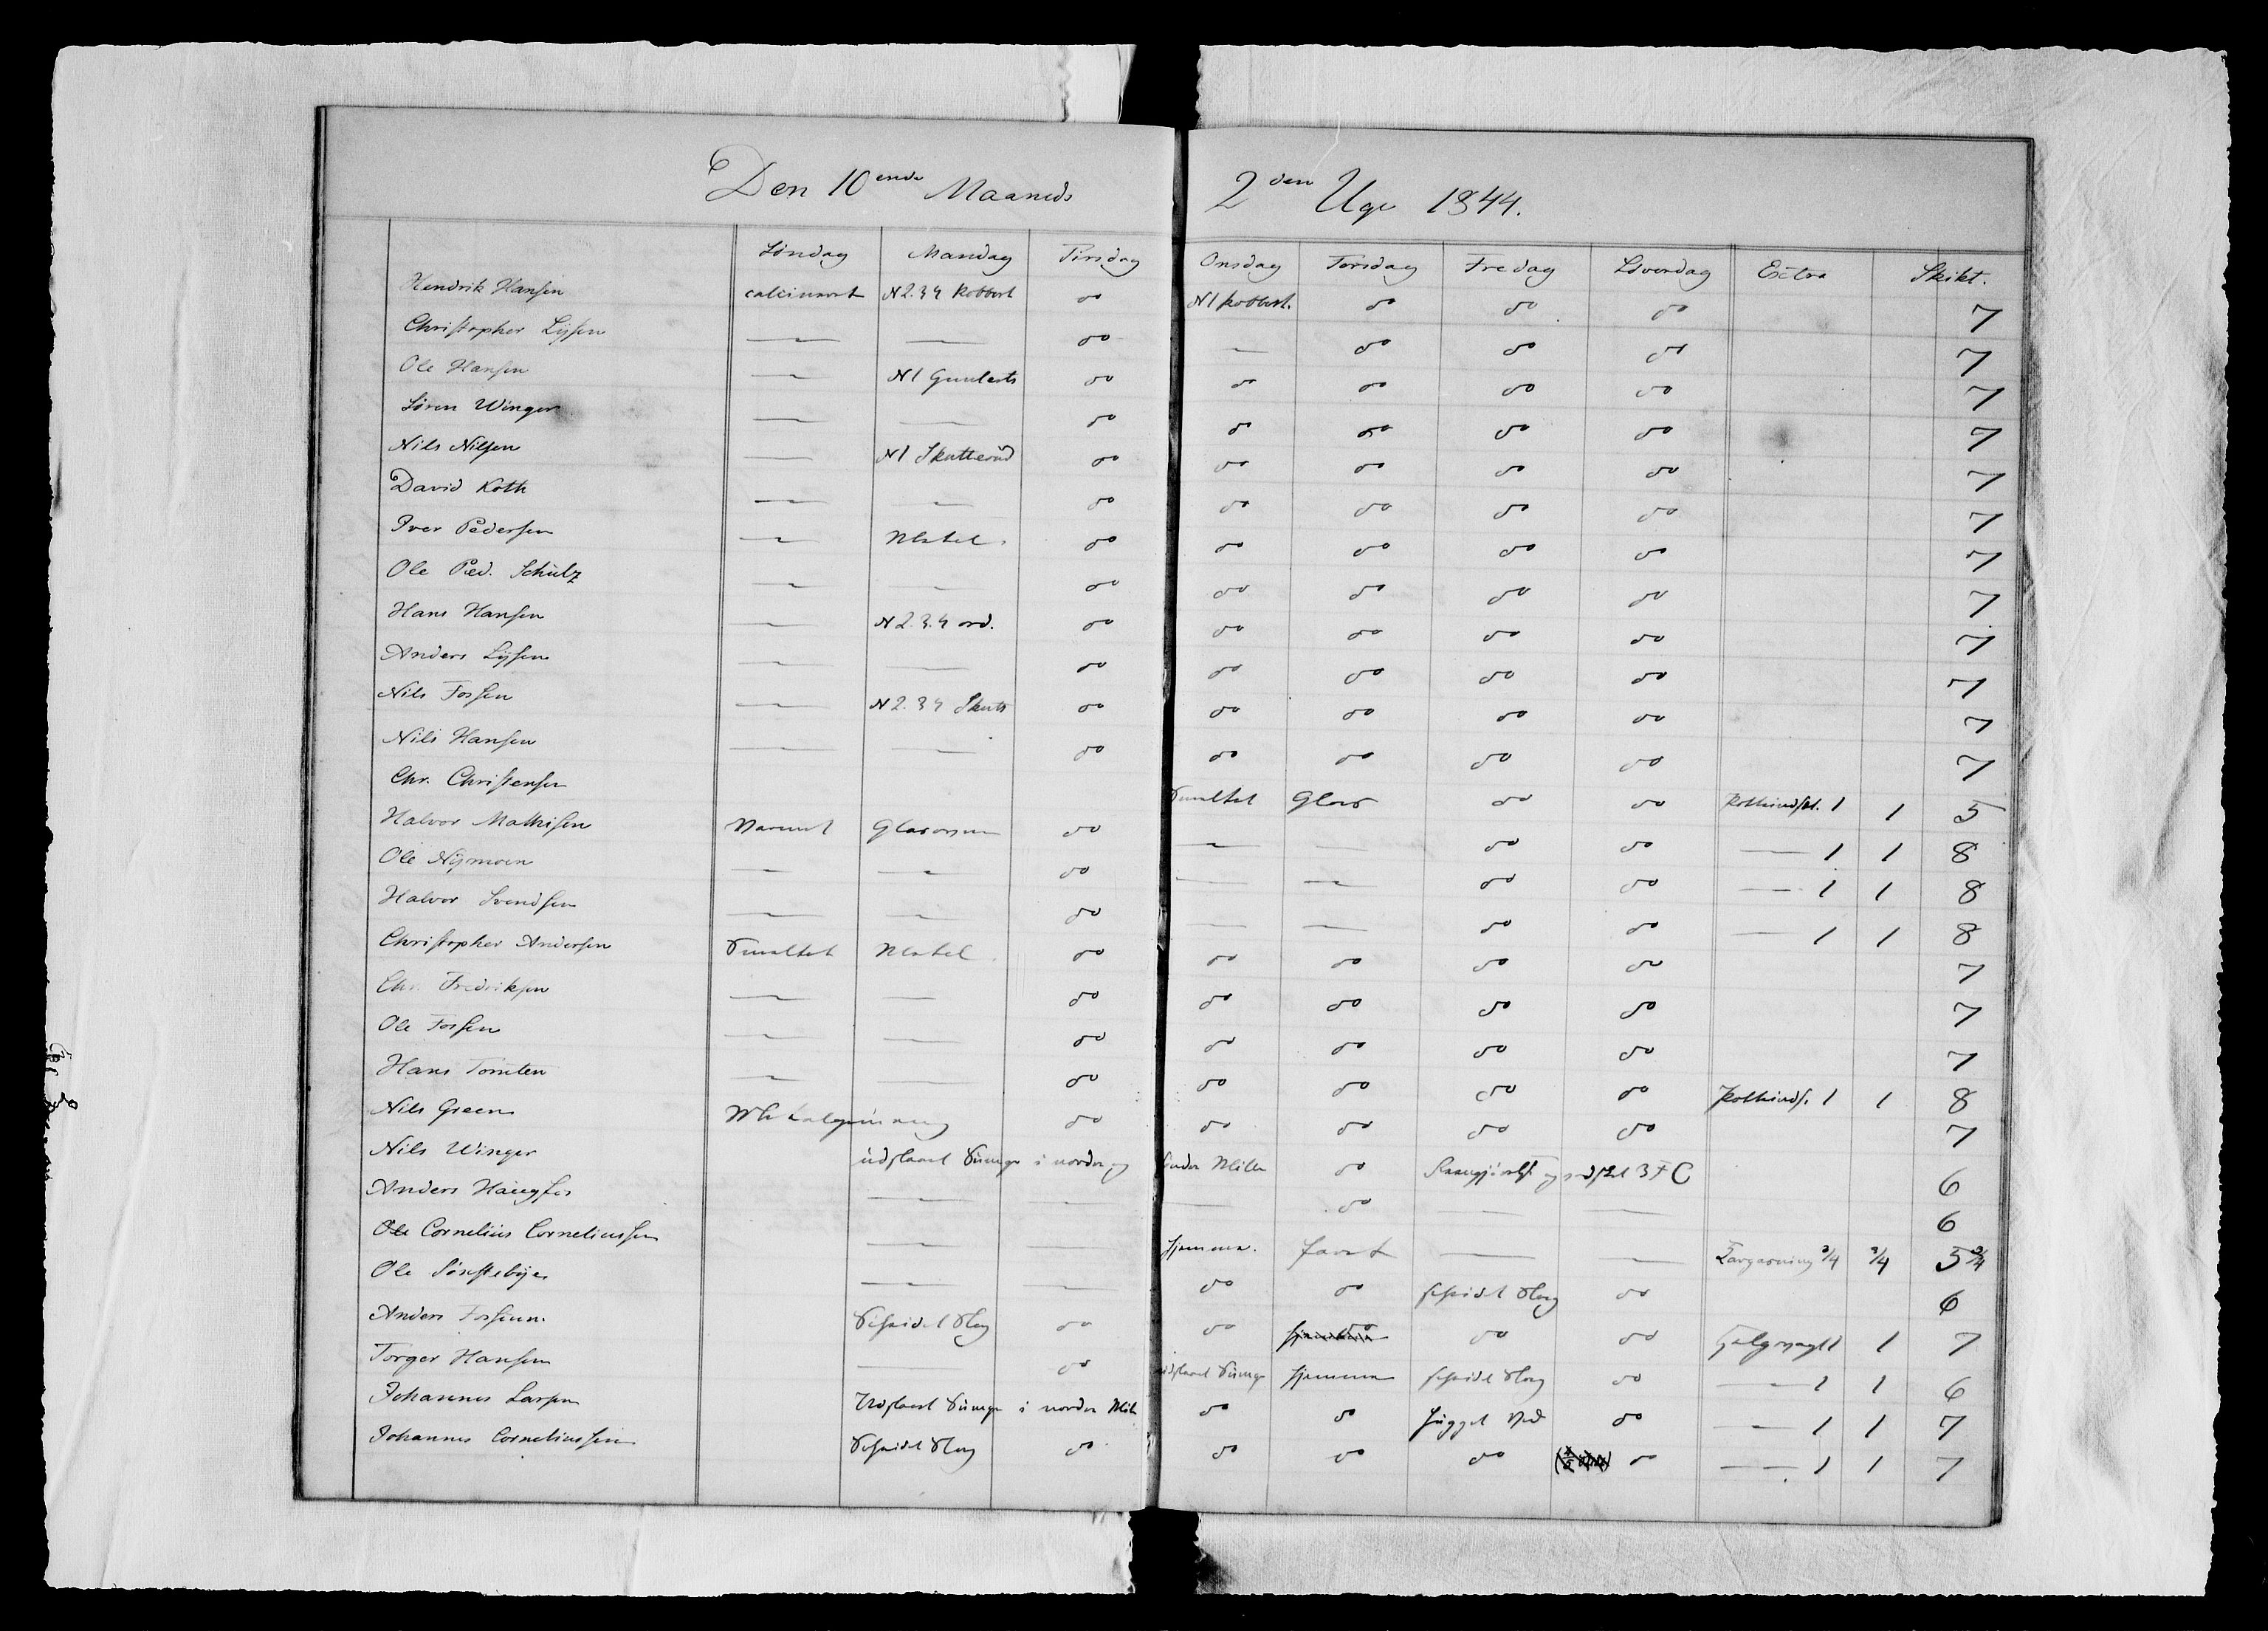 Den 10ende Maaneds 2den Uge 1844.
Søndag Mandag Tirsdag Onsdag Torsdag Fredag Løverdag Extra Skikt.
Hendrik Hansen calcineret N 2.3 4 Kobbert do N 1 Kobbert. do do do 7
Christopher Lysen — — do — do do do 7
Ole Hansen — N 1 do do do do do 7
Søren Winger — — do do do do do 7
Nils Nilsen — N 1 Skutterud do do do do do 7
David Koth — — do do do do do 7
Iver Pedersen — do do do do do 7
Ole Ped. Schulz — — do do do do do 7
Hans Hansen — N 2.3.4 ord. do do do do do 7
Anders Lysen — — do do do do do 7
Nils Fossen — N 2.3 4 Skutt do do do do do 7
Nils Hansen — — do do do do do 7
Chr. Christensen Smeltet Glas do do 1 1 5
Halvor Mathisen Varmet Glasovnen do — — do do — 1 1 8
Ole Nymoen — — do — — do do — 1 1 8
Halvor Svendsen — — do — — do do — 1 1 8
Christopher Andersen Smeltet do do do do do 7
Chr. Fredriksen — — do do do do do 7
Ole Fossen — — do do do do do 7
Hans Tomten — — do do do do do 1 1 8
Nils Green do do do do do 7
Nils Winger udslaaet i nordre og do 3 F C 6
Anders Haugfos — — — do — — 6
Ole Cornelius Corneliussen — — hjemme. — — 3/4 3/4 5 3/4
Ole Sønsteby — — do do do 6
Anders Fossum do do do do do 1 1 7
Torger Hansen — do udslaaet hjemme do — 1 1 6
Johannes Larsen Udslaaet i nordre do do hugget Ved do — 1 1 7
Johannes Corneliussen do do do do do — 1 1 7